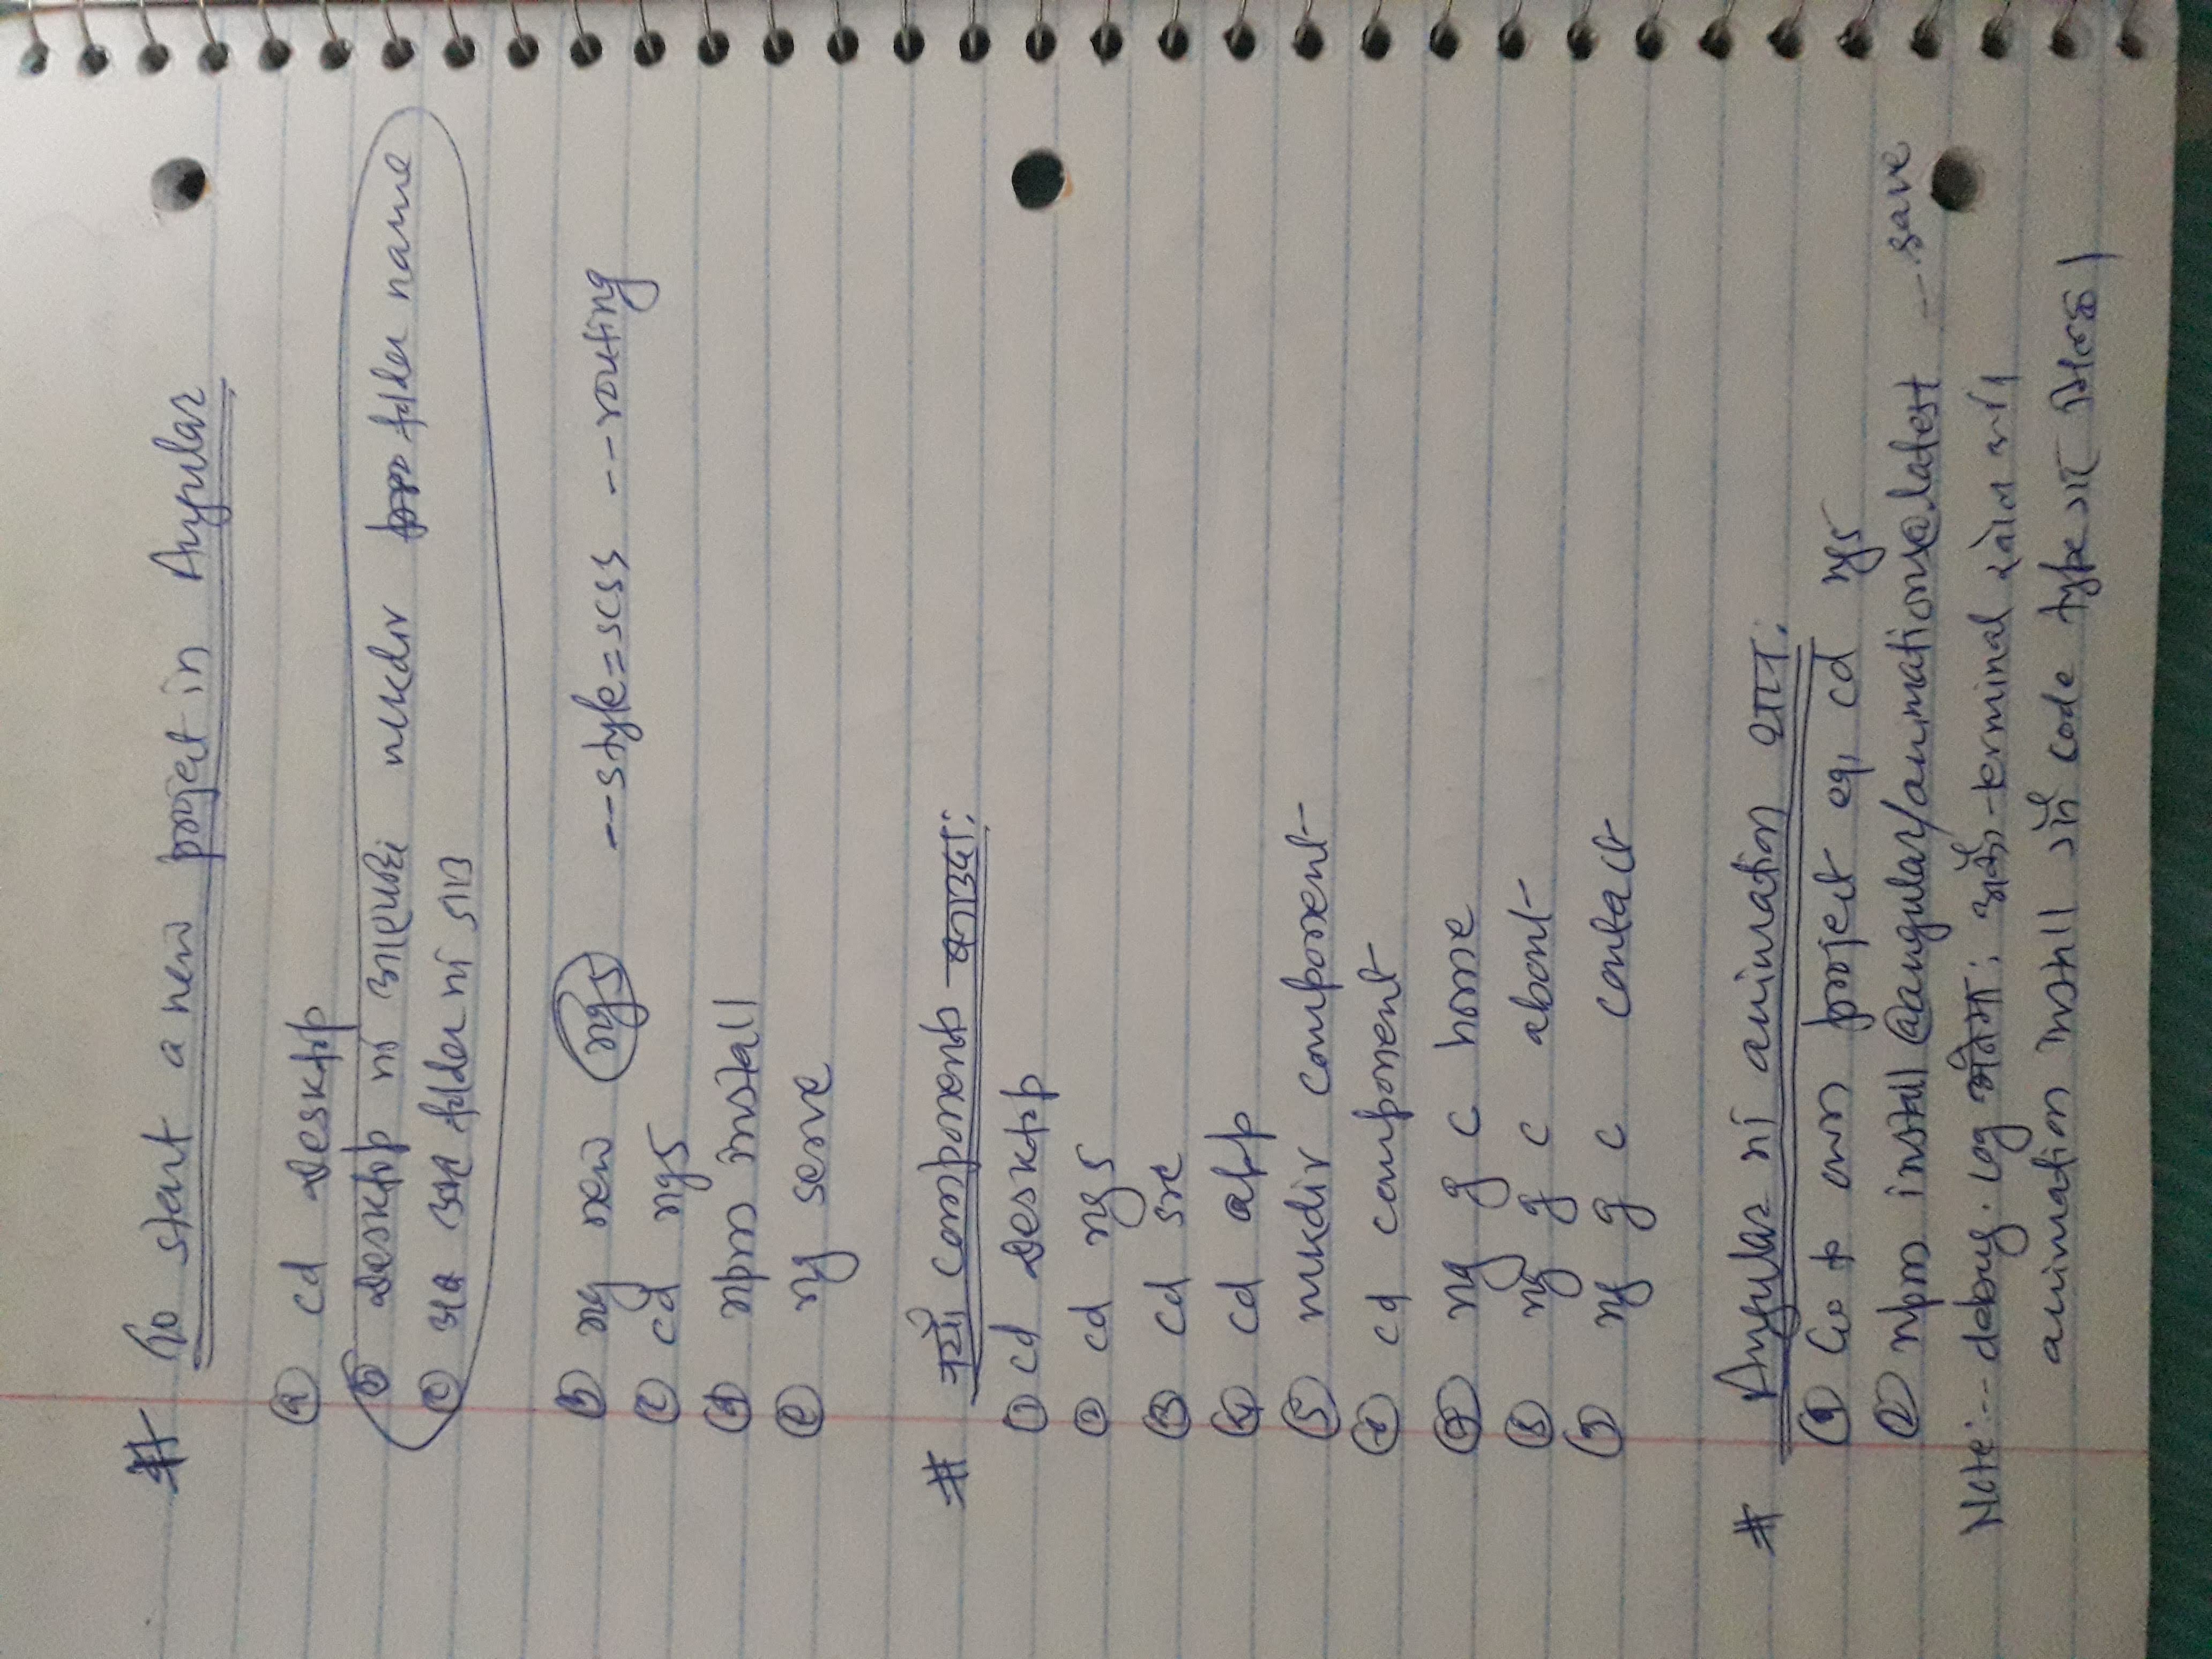 # To start a new project in Angular
ⓐ cd Desktop
ⓑ Desktop मा mkdir folder name
ⓒ अब folder मा जाउ
ⓑ ng new ng5 --style=scss --routing
ⓒ cd ng5
ⓓ npm install
ⓔ ng serve
# नयाँ components बनाउदा:
① cd Desktop
② cd ng5
③ cd src
④ cd app
⑤ mkdir component
⑥ cd component
⑦ ng g c home
⑧ ng g c about
⑨ ng g c contact
# Angular मा animation थाल्न:
① Go to own project eg, cd ng5
② npm install @angular/animations@latest --save
Note:-- debug.log अर्को terminal
animation install गर्ने code type गर्न मिल्छ।